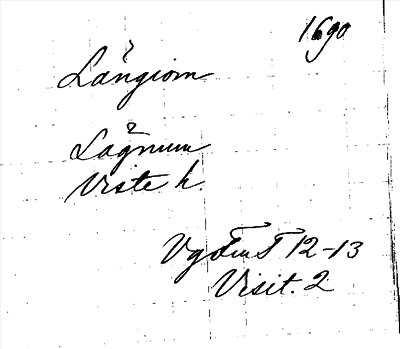 1690
Långiom
Lågnum
Viste h.
VgFmT 12-13
Visit. 2